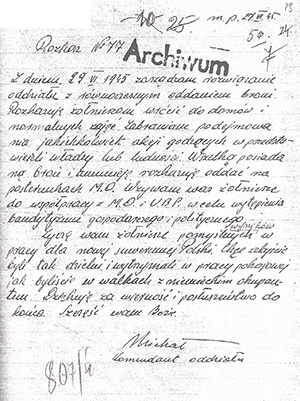 25
m.p. 27 VI 45
50. 24
Rozkaz Nº 77
Archiwum
Z dniem 29 VI 1945 zarządzam rozwiązanie
oddziału z równoczesnym oddaniem broni.
Rozkazuję żołnierzom wrócić do domów i
normalnych zajęć zabraniam podejmowa
nia jakichkolwiek akcji godzących w przedsta-
wicieli władzy lub ludności. Wszelką posiada
ną broń i amunicję rozkazuję oddać na
posterunkach M.O. Wzywam was żołnierze
do współpracy z M.O. i U.B.P. w celu wytępienia
bandytyzmu gospodarczego i politycznego.
Życzę wam żołnierze pomyślnych wyników w
pracy dla nowej suwerennej Polski. Obyście
byli tak dzielni i wytrzymali w pracy pokojowej
jak byliście w walkach z niemieckim okupan-
tem. Dziękuję za wierność i posłuszeństwo do
końca. Szczęść wam Boże.
Michał
Komendant oddziału